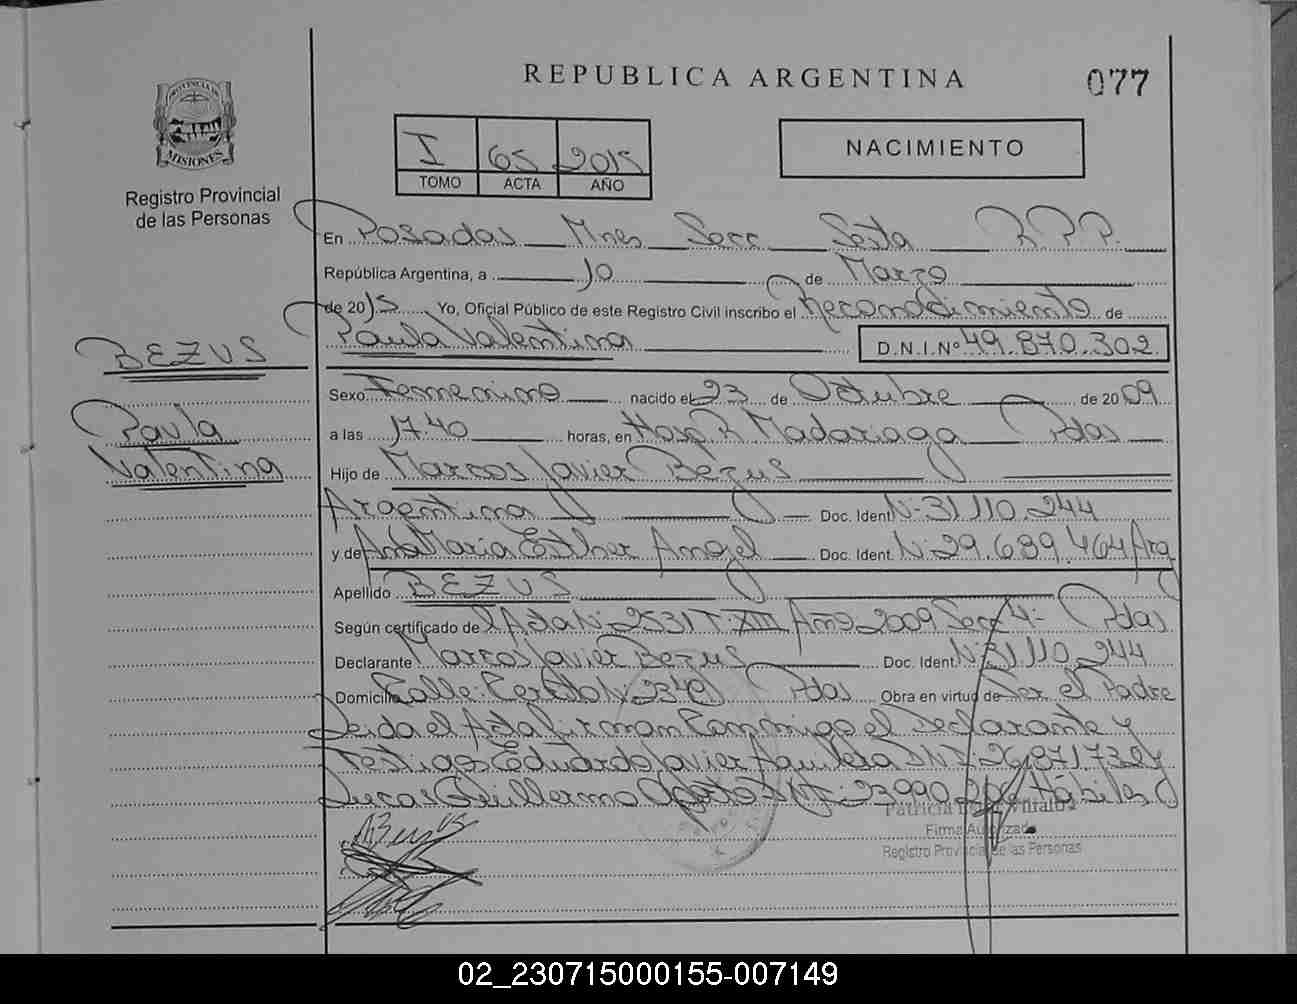 REPUBLICA ARGENTINA
077
PROVINCIA DE
MISIONES
Registro Provincial
de las Personas
I 65 2015
TOMO ACTA AÑO
NACIMIENTO
En Posadas Mnes Secc Sexta R.P.P.
República Argentina, a 10 de Marzo
de 2015 Yo, Oficial Público de este Registro Civil inscribo el Reconocimiento de
Paula Valentina D.N.I.Nº 49.870.302
BEZUS
Paula
Valentina
Sexo Femenino nacido el 23 de Octubre de 2009
a las 17.40 horas, en Hosp R Madariaga Pdas
Hijo de Marcos Javier Bezus
Argentina Doc. Ident. Nº 31.110.244
y de Ana Maria Esther Angel Doc. Ident. Nº 29.689.464 Arg
Apellido BEZUS
Según certificado de l Acta Nº 2531 T XIII Año 2009 Secc 4º Pdas
Declarante Marcos Javier Bezus Doc. Ident. Nº 31.110.244
Domicilio Calle Nº 2349 Pdas Obra en virtud de Ser el Padre
Leida el Acta firman Conmigo el Declarante y
Testigos Eduardo Javier Aguilera DNI 26.871.732 y
Lucas Guillermo DNI 23990 Hábiles
Patricia
Firma Autorizada
Registro Provincial de las Personas
02_230715000155-007149